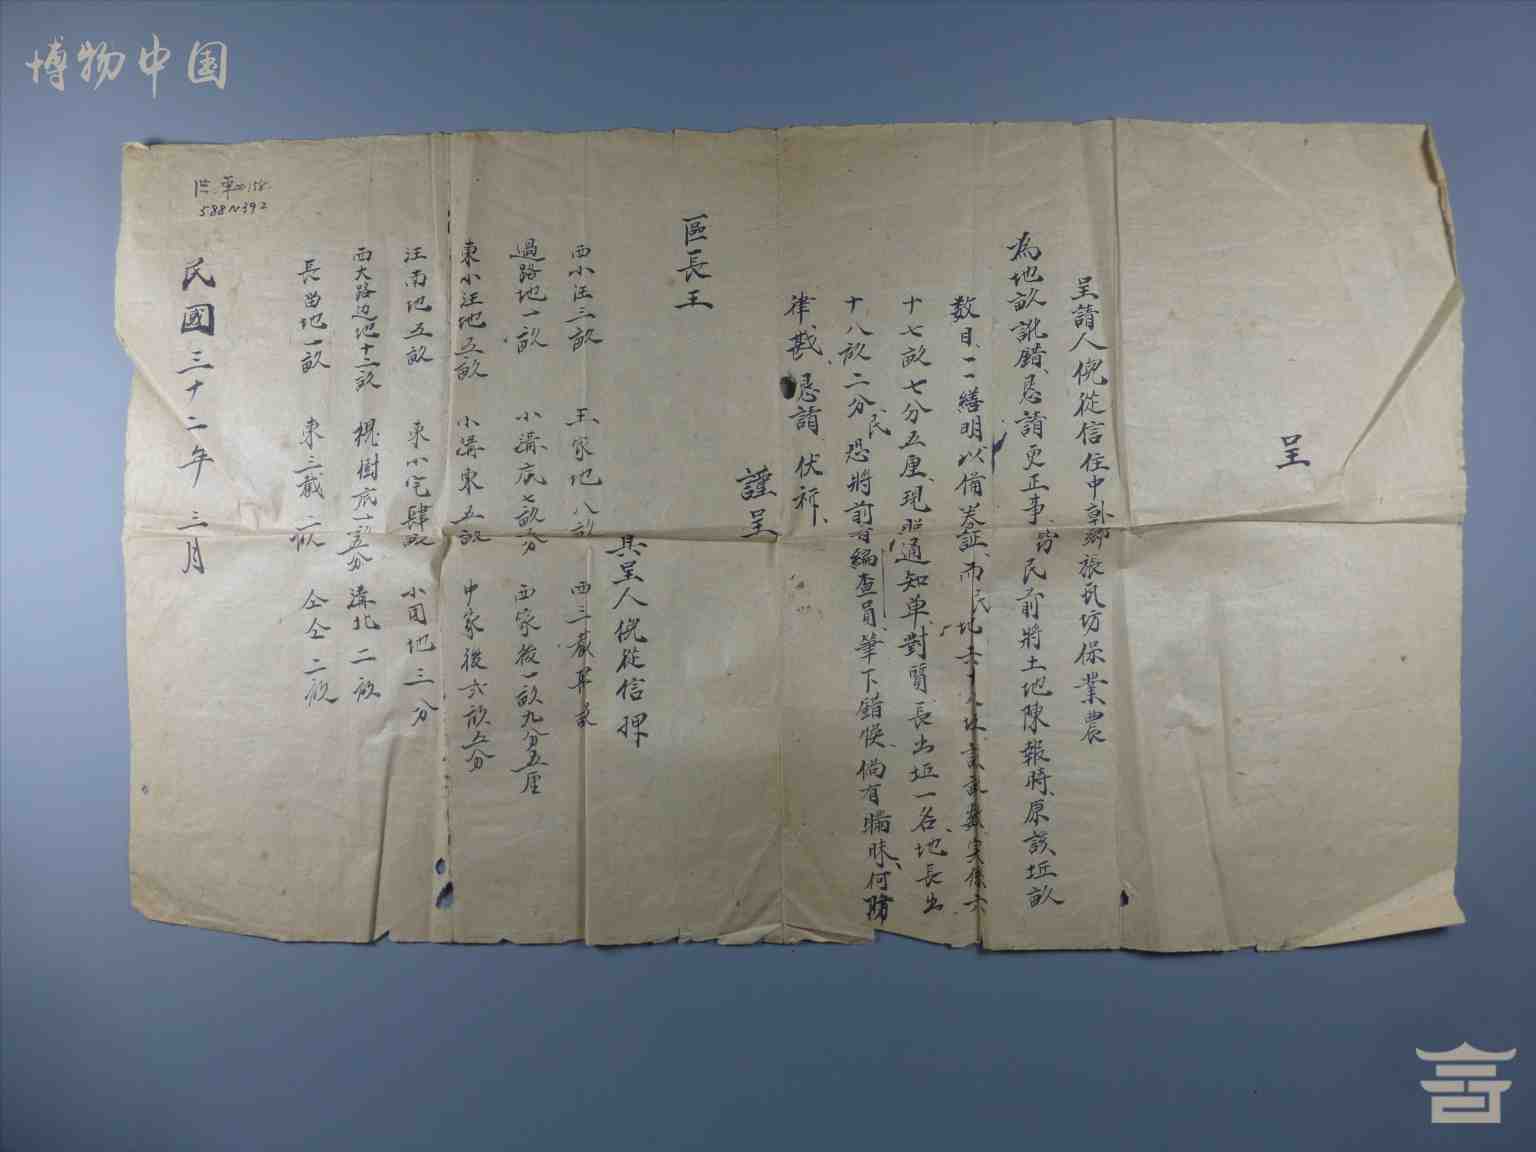 博物中国
呈
呈請人倪從信住中 鄉張 坊保業農
為地畝訛錯懇請更正事 民前將土地陳報時原該坵畝
数目一一繕明以備 証而民地 实係六
十七畝七分五厘現照通知单對質長出坵一名地長出
十八畝二分民恐將前 編查員筆下錯悞倘有瞞昧何防
律戡懇請伏祈
謹呈
區長王
具呈人倪從信押
西小汪三畝 王家地八畝 西三截
過路地一畝 小溝底七畝 分 西家後一畝九分五厘
東小汪地五畝 小溝東五畝 中家後弍畝五分
汪南地五畝 東小宅肆畝 小园地三分
西大路边地十二畝 槐樹底一畝五分 溝北二畝
長畄地一畝 東三截 二畝 仝仝二畝
民國三十二年 三月
588N392